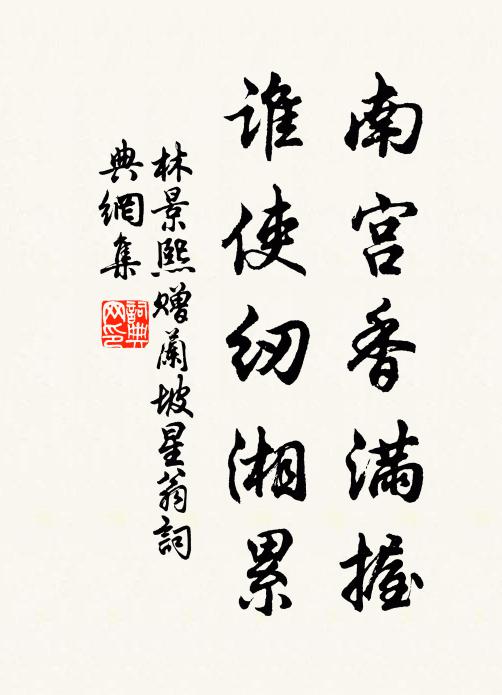 南宫香满握
谁使纫湘累
林景熙赠蘭坡星翁詞
典網集
詞典網印